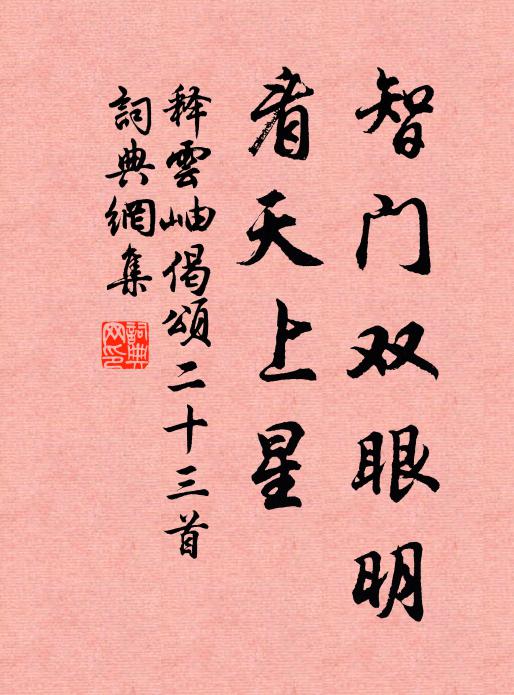 智门双眼明
看天上星
释雲岫偈頌二十三首
詞典網集
詞典网印